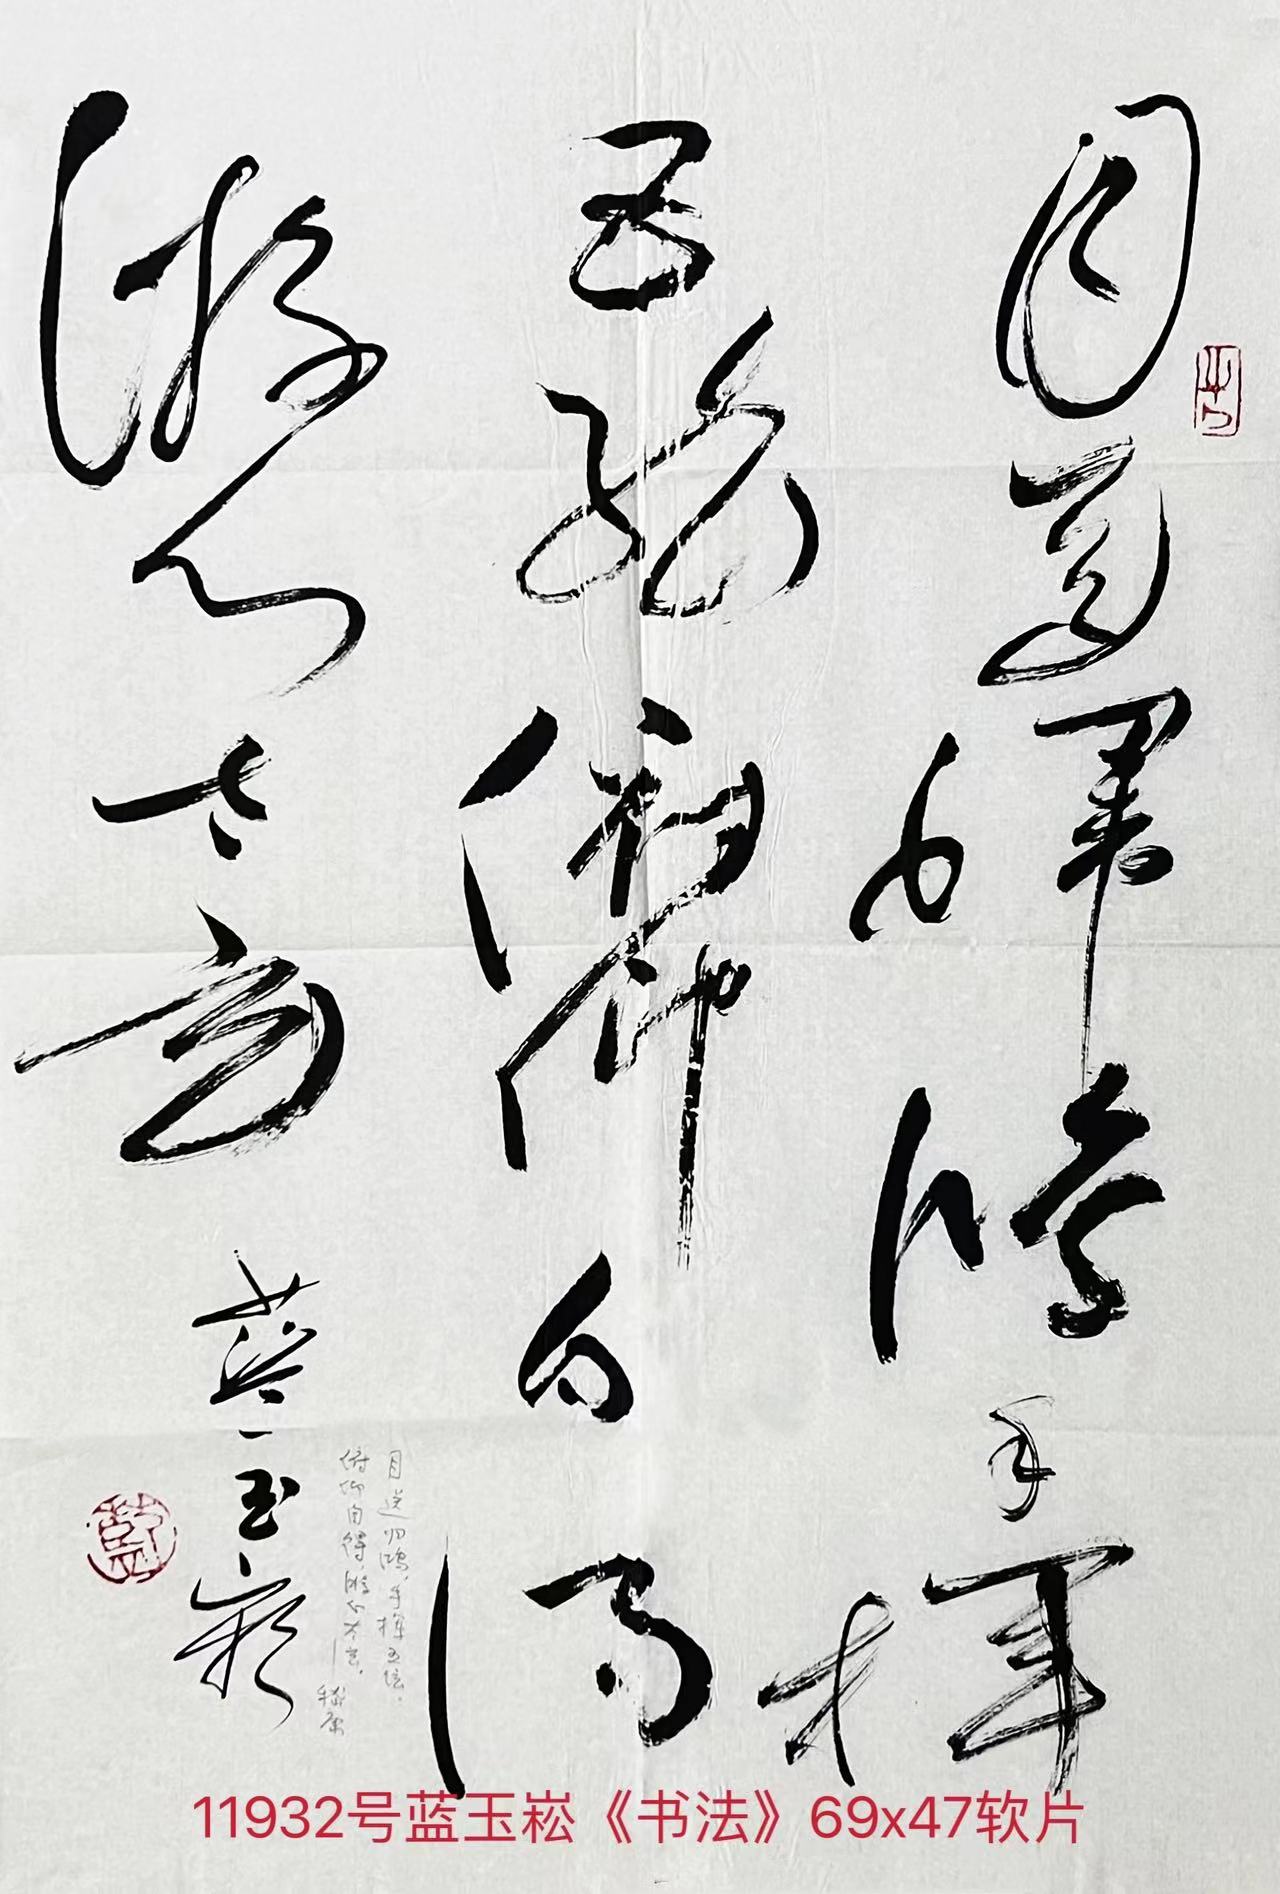 目送归鸿手挥
五弦俯仰自得
游心太玄
蓝玉崧
目送归鸿，手挥五弦，
俯仰自得，游心太玄。
嵇康
11932号蓝玉崧《书法》69x47软片